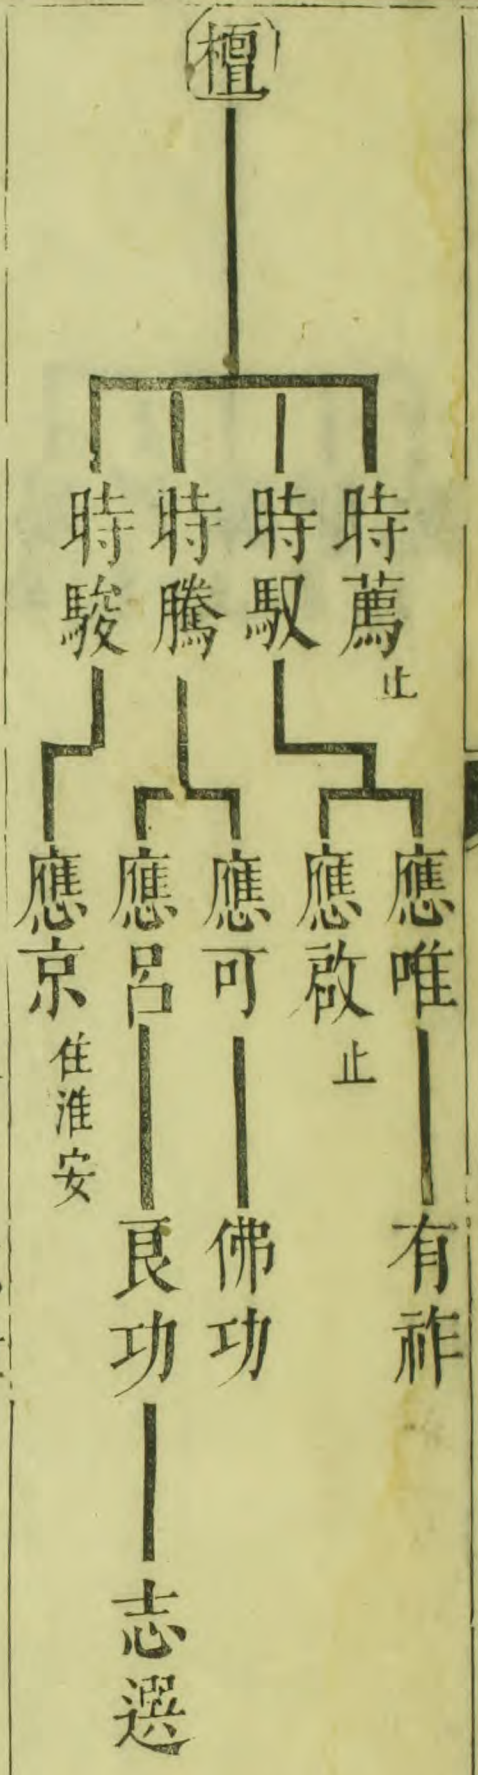 檀
時薦 止
時馭
時騰
時駿
應唯
應啟 止
應可
應呂
應京 住淮安
有祚
佛功
良功
志選